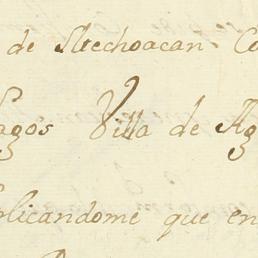 de Mechoacan. Co
agos Villa de Ag
plicandome que en